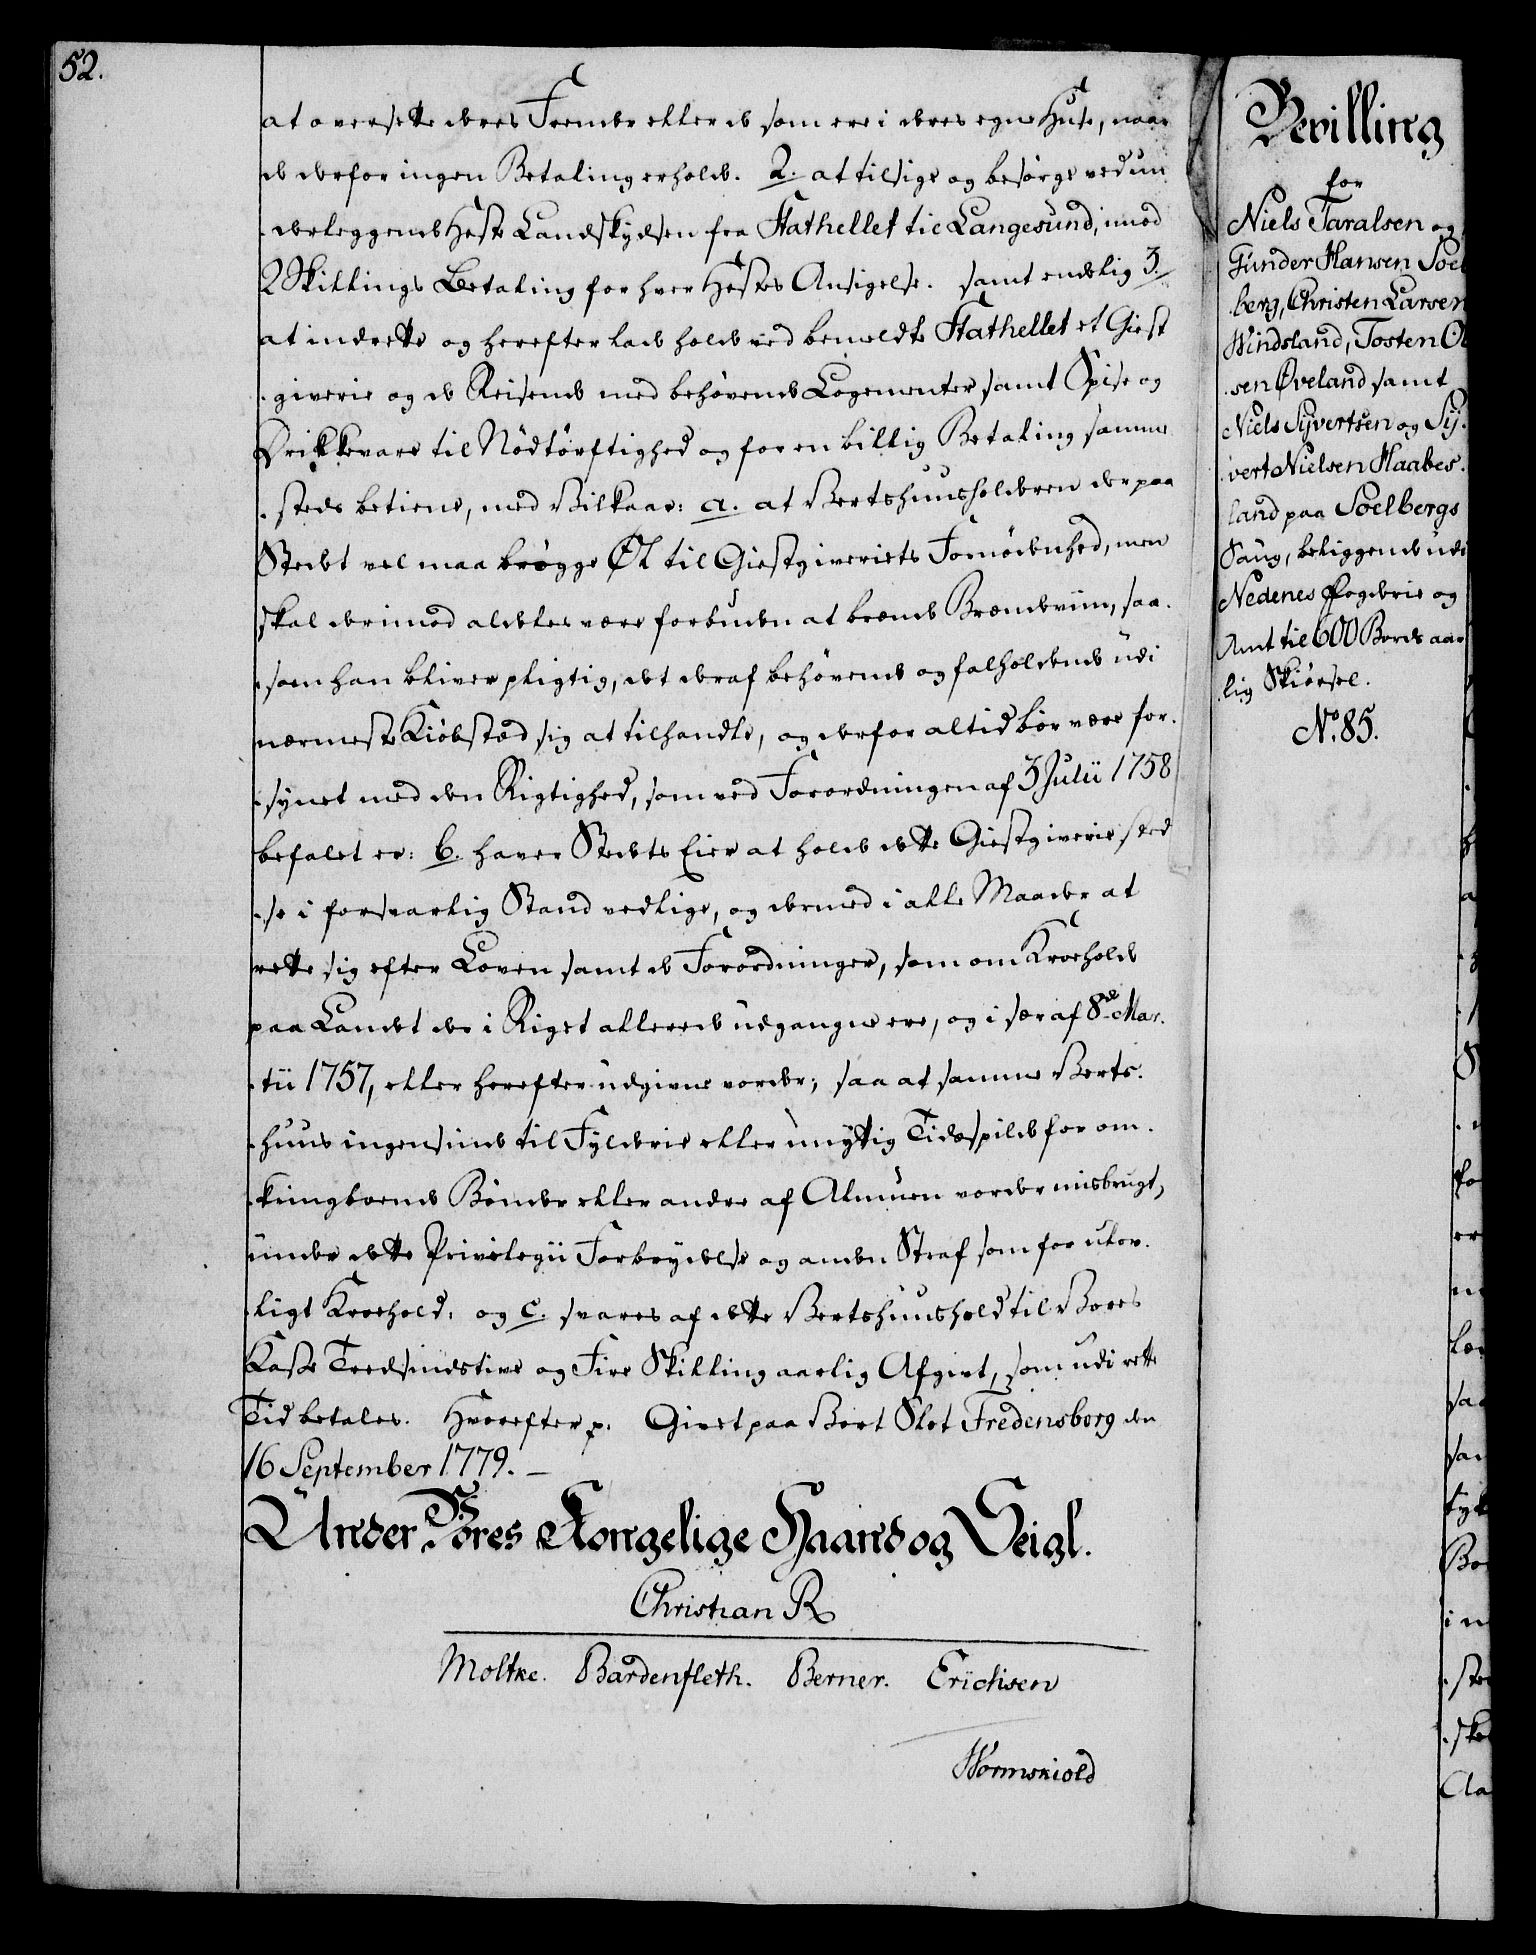 52.
at oversette deres Fremde eller de som ere i deres egne Huse, naar
de derfor ingen Betaling erholde. 2. at tilsige og besørge ved un
derleggende Heste Landskydsen fra Stathellet til Langesund, imod
2 Skillings Betaling for hver Hestes Ansigelse. samt endelig 3.
at indrette og herefter lade holde ved bemeldte Stathellet et Giest
giverie og de Reisende med behøvende Logementer samt Spise og
Drikkevare til Nödtörftighed og for en billig Betaling samme
steds betiene, med Vilkaar: a. at Vertshuusholderen der paa
Stedet vel maa brøgge Øl til Giestgiveriets Fornödenhed, men
skal derimod aldeles være forbuden at brænde Brændeviin, saa
som han bliver pligtig, det deraf behøvende og falholdende udi
nærmeste Kiöbstæd sig at tilhandle, og derfor altid bör være for
synet med den Rigtighed, som ved Forordningen af 3 Julii 1758
befalet er: b. haver Stedets Eier at holde dette Giestgiverie sted
se i forsvarlig Stand vedlige, og dermed i alle Maader at
rette sig efter Loven samt de Forordninger, som om Kroehold
paa Landet der i Riget allerede udgangne ere, og i sær af 8de Mar
tii 1757, eller herefter udgivne vorder; saa at samme Verts
huus ingensinde til Fylderie eller unyttig Tidsspilde for om
kringboende Bönder eller andre af Almuen vorder misbrugt,
under dette Privilegii Forbrydelse og anden Straf som for ulov
ligt Kroehold: og c. svares af dette Vertshuushold til Vores
Casse Tredsindstive og Fire Skilling aarlig Afgivt, som udi rette
Tid betales. Hvorefter p. Givet paa Vort Slot Fredensborg den
16 September 1779.
Under Vores Kongelige Haand og Seigl.
Christian R
Moltke. Bardenfleth. Berner. Erichsen
Wormskiold
Bevilling
for
Niels Taralsen og
Gunder Hansen Soel
berg, Christen Larsen
Windsland, Tosten Ol
sen Øveland samt
Niels Syvertsen og Sy
vert Nielsen Haabes
land paa Soelbergs
Saug, beliggende udi
Nedenes Fogderie og
Amt til 600 Bords aar
lig Skiørsel.
No. 85.